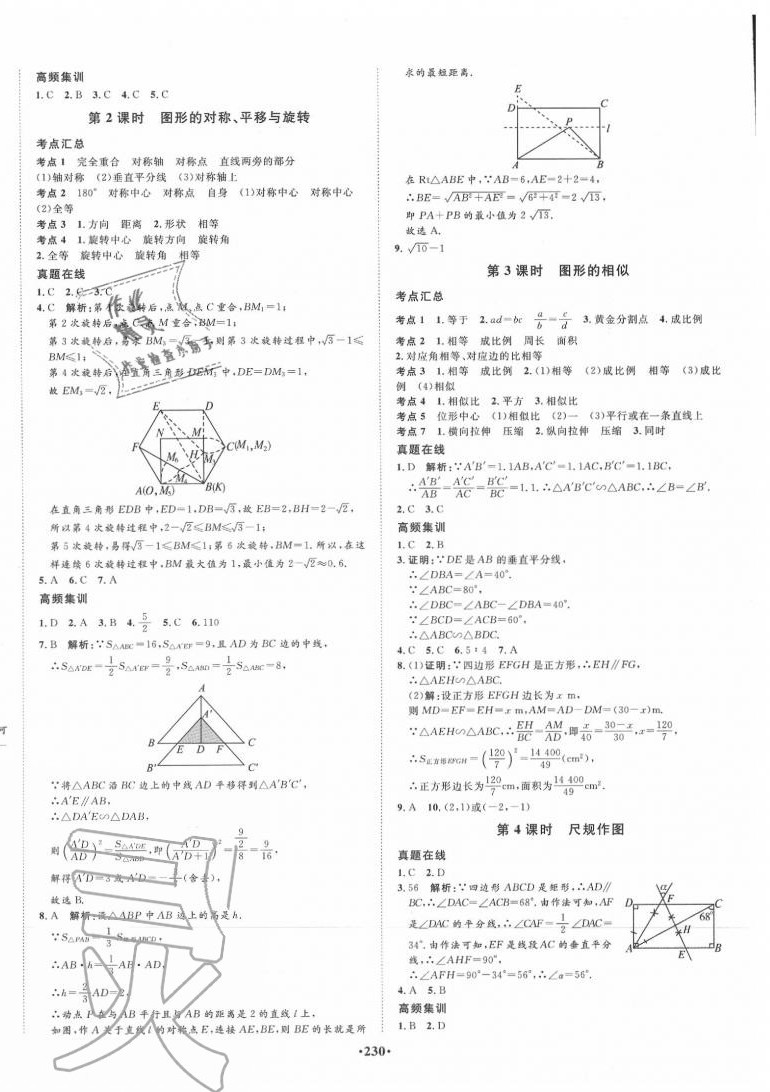 高频集训
1. C  2. B  3. C  4. C  5. C
第 2 课时  图形的对称、平移与旋转
考点汇总
考点 1  完全重合  对称轴  对称点  直线两旁的部分
(1)轴对称  (2)垂直平分线  (3)对称轴上
考点 2  180°  对称中心  对称点  自身  (1)对称中心  对称中心
(2)全等
考点 3  1. 方向  距离  2. 形状  相等
考点 4  1. 旋转中心  旋转方向  旋转角
2. 全等  旋转中心  旋转角  相等
真题在线
1. C  2. C  3. C
4. C  解析:第 1 次旋转后,点 M₁ 点 C 重合,BM₁=1;
第 2 次旋转后,点 C 点 M 重合,BM=1;
第 3 次旋转后,易求 BM₃=√3-1,则第 3 次旋转过程中,√3-1≤
BM≤1;
第 4 次旋转后,在直角三角形 DEM₃ 中,DE=DM₃=1,
故 EM₃=√2,
E D
N M
F M₆ H M₃ C(M₁,M₂)
M₄
A(O,M₅) B(K)
在直角三角形 EDB 中,ED=1,DB=√3,故 EB=2,BH=2-√2,
所以第 4 次旋转过程中,2-√2≤BM≤√3-1;
第 5 次旋转,易得√3-1≤BM≤1;第 6 次旋转,BM=1. 所以,在这
样连续 6 次旋转过程中,BM 最大值为 1,最小值为 2-√2≈0.6.
5. A  6. C  7. A
高频集训
1. D  2. A  3. B  4. 5/2  5. C  6. 110
7. B  解析:∵S△ABC=16,S△A′EF=9,且 AD 为 BC 边的中线,
∴S△A′DE=1/2 S△A′EF=9/2,S△ABD=1/2 S△ABC=8,
A
A′
B E D F C
B′ C′
∵将△ABC 沿 BC 边上的中线 AD 平移得到△A′B′C′,
∴A′E∥AB,
∴△DA′E∽△DAB,
则(A′D/AD)²=S△A′DE/S△ABD,即(A′D/(A′D+1))²=(9/2)/8=9/16,
解得 A′D=3或 A′D=-(舍去),
故选 B.
8. A  解析:设△ABP 中 AB 边上的高是 h.
∵S△PAB=1/3 S矩形ABCD,
∴AB·h=1/3 AB·AD,
∴h=2/3 AD=2,
∴动点 P 在与 AB 平行且与 AB 的距离是 2 的直线 l 上,
如图,作 A 关于直线 l 的对称点 E,连接 AE,BE,则 BE 的长就是所
求的最短距离.
E
D C
P l
A B
在 Rt△ABE 中,∵AB=6,AE=2+2=4,
∴BE=√(AB²+AE²)=√(6²+4²)=2√13,
即 PA+PB 的最小值为 2√13.
故选 A.
9. √10-1
第 3 课时  图形的相似
考点汇总
考点 1  1. 等于  2. ad=bc  a/b=c/d  3. 黄金分割点  4. 成比例
考点 2  1. 相等  成比例  周长  面积
2. 对应角相等、对应边的比相等
考点 3  1. 相等  成比例  2. (1)相等  (2)成比例  相等  (3)成比
例  (4)相似
考点 4  1. 相似比  2. 平方  3. 相似比
考点 5  位形中心  (1)相似比  (2)一  (3)平行或在一条直线上
考点 7  1. 横向拉伸  压缩  2. 纵向拉伸  压缩  3. 同时
真题在线
1. D  解析:∵A′B′=1.1AB,A′C′=1.1AC,B′C′=1.1BC,
∴A′B′/AB=A′C′/AC=B′C′/BC=1.1. ∴△A′B′C′∽△ABC,∴∠B=∠B′.
2. C  3. C
高频集训
1. C  2. B
3. 证明:∵DE 是 AB 的垂直平分线,
∴∠DBA=∠A=40°.
∵∠ABC=80°,
∴∠DBC=∠ABC-∠DBA=40°.
∵∠BCD=∠ACB=60°,
∴△ABC∽△BDC.
4. C  5. C  6. 5∶4  7. A
8. (1)证明:∵四边形 EFGH 是正方形,∴EH∥FG,
∴△AEH∽△ABC.
(2)解:设正方形 EFGH 边长为 x m,
则 MD=EF=EH=x m,AM=AD-DM=(30-x)m.
∵△AEH∽△ABC,∴EH/BC=AM/AD,即 x/40=(30-x)/30,x=120/7,
∴S正方形EFGH=(120/7)²=14 400/49(cm²),
∴正方形边长为120/7 cm,面积为14 400/49 cm².
9. A  10. (2,1)或(-2,-1)
第 4 课时  尺规作图
真题在线
1. C  2. D
3. 56  解析:∵四边形 ABCD 是矩形,∴AD∥
BC,∴∠DAC=∠ACB=68°. 由作法可知,AF
是∠DAC 的平分线,∴∠CAF=1/2∠DAC=
34°. 由作法可知,EF 是线段 AC 的垂直平分
线,∴∠AHF=90°.
∴∠AFH=90°-34°=56°,∴∠α=56°.
α
D F C
68°
H
A E B
4. A  5. B
高频集训
1. B  2. D
·230·